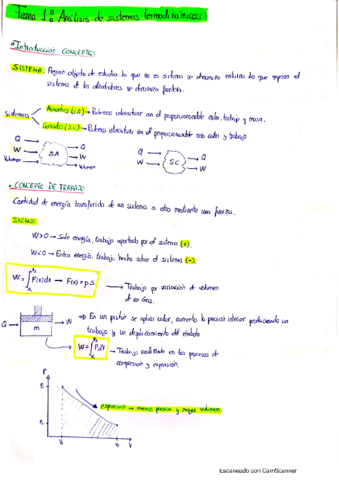 Tema 1: Análisis de sistemas termodinámicos
Introducción: CONCEPTOS
SISTEMA: Región objeto de estudio lo que no es sistema se denomina entorno lo que separa el
sistema de los alrededores se denomina frontera.
Sistemas
Abiertos (S.A) → Pueden interactuar en el proporcionando calor, trabajo y masa.
Cerrados (S.C) → Pueden interactuar en el proporcionando solo calor y trabajo
Q
W
Volumen
SA
Q
W
Volumen
Q
W
SC
Q
W
CONCEPTO DE TRABAJO
Cantidad de energía transferida de un sistema a otro mediante una fuerza.
SIGNO:
W>0 → Sale energía, trabajo aportado por el sistema (+)
W<0 → Entra energía, trabajo hecho sobre el sistema (-)
W = ∫ F(x)dx → F(x) = p.S
Trabajo por variación de volumen
de un Gas.
Q
m
W
⇒ En un pistón se aplica calor, aumenta la presión interior produciendo un
trabajo y un desplazamiento del émbolo
W = ∫ P.dV
→ Trabajo realizado en los procesos de
compresión y expansión.
P
expansión → menos presión y mayor volumen.
V
Escaneado con CamScanner